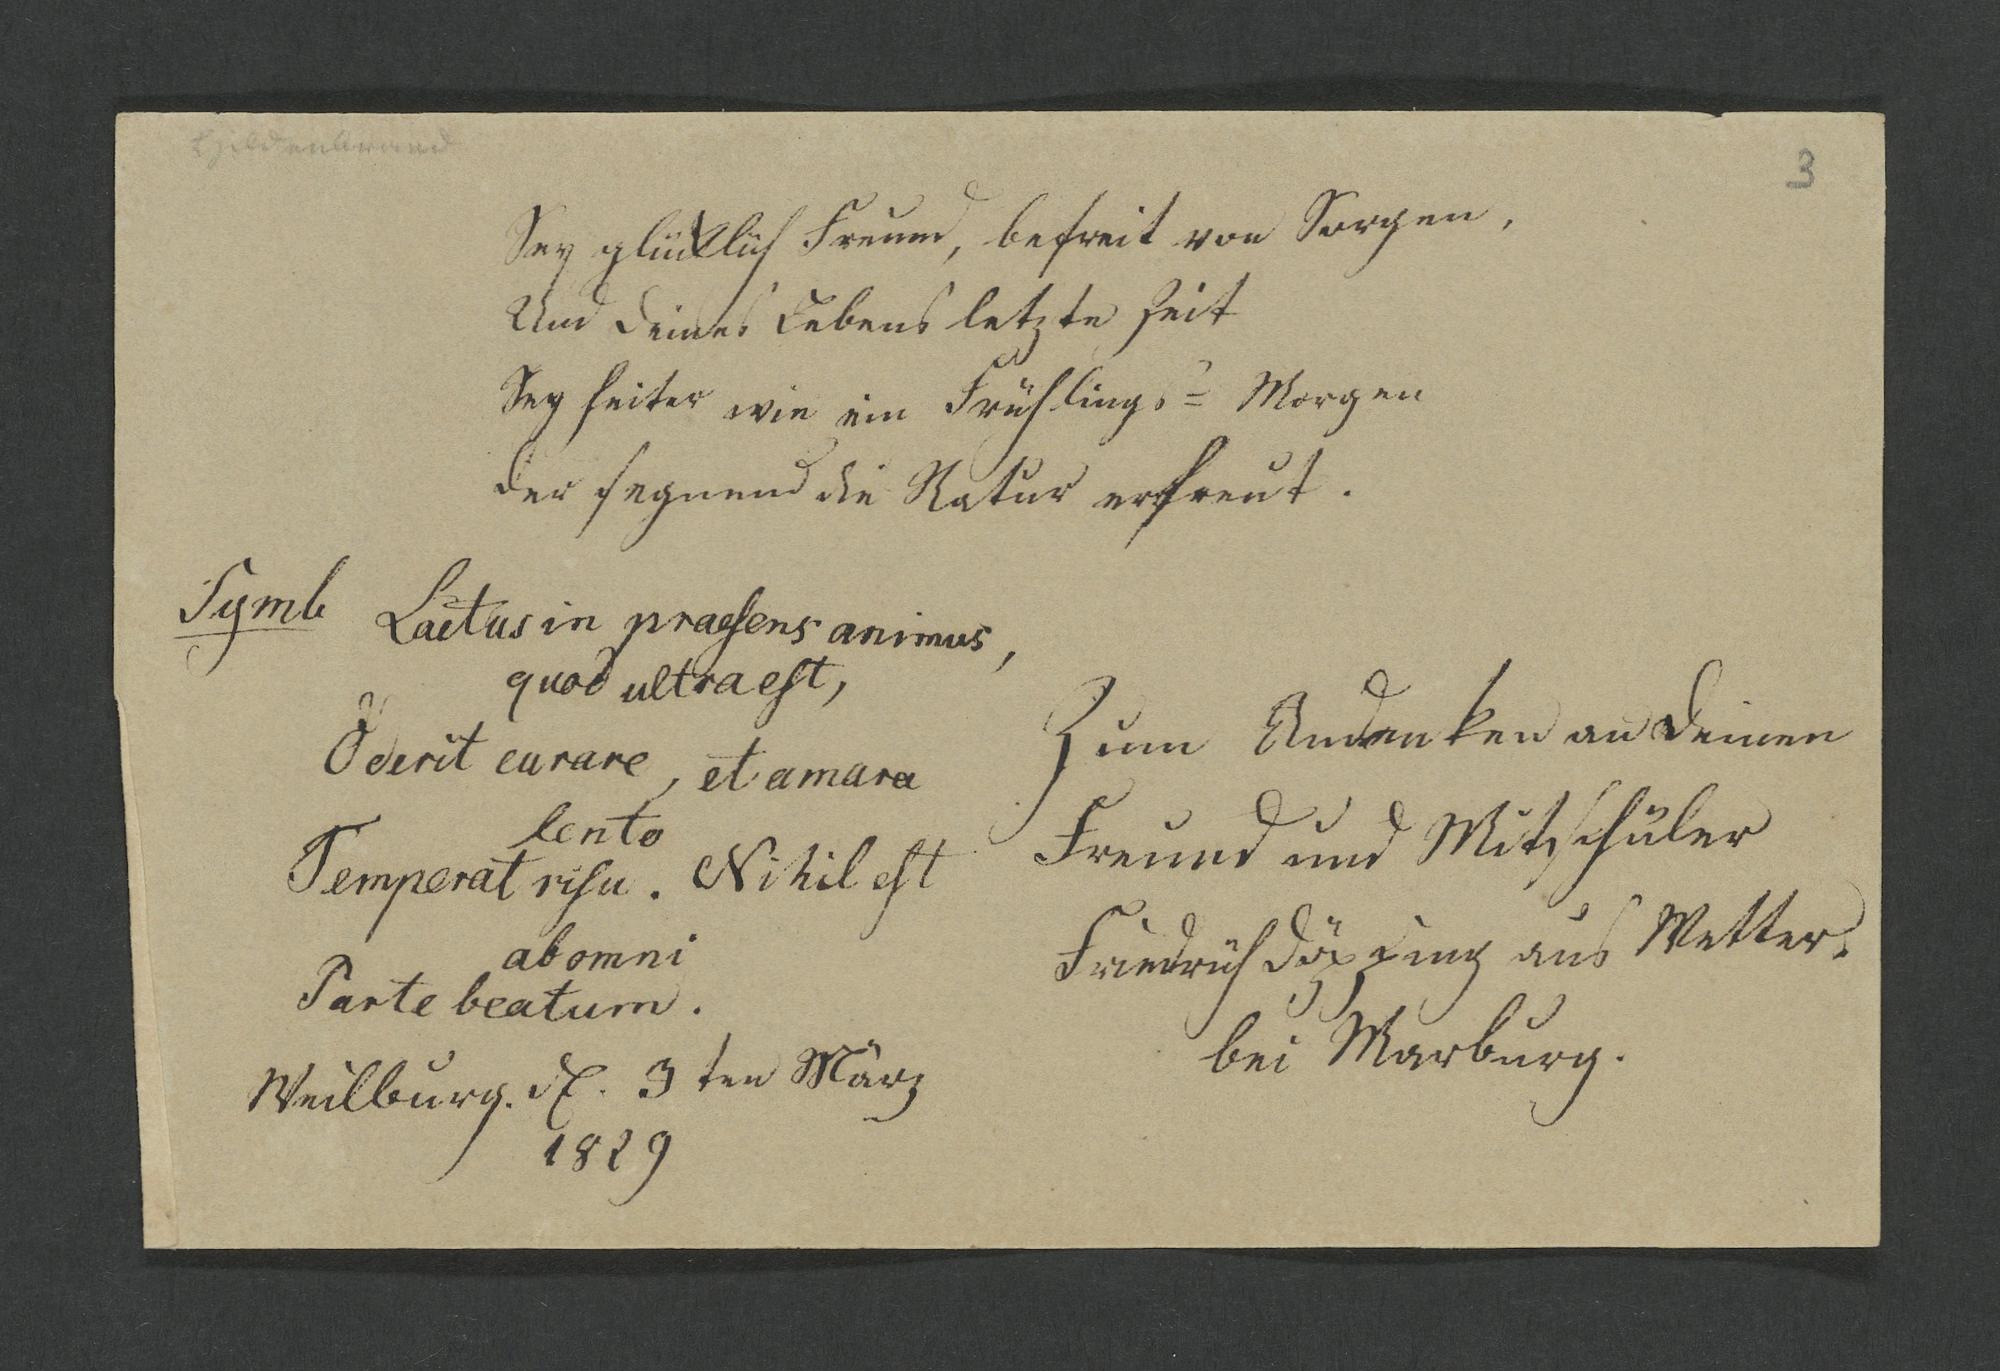 Hildenbrand
3
Sey glücklich Freund, befreit von Sorgen,
Und deines Lebens letzte Zeit
Sey heiter wie ein Frühlings= Morgen
der segnend die Natur erfreut.
Symb Laetus in praesens animus,
quod ultra est,
Oderit curare, et amara
lento
Temperat risu. Nihil est
ab omni
Parte beatum.
Weilburg. d. 3ten März
1829
Zum Andenken an deinen
Freund und Mitschüler
Friedrich aus Wetter.
bei Marburg.